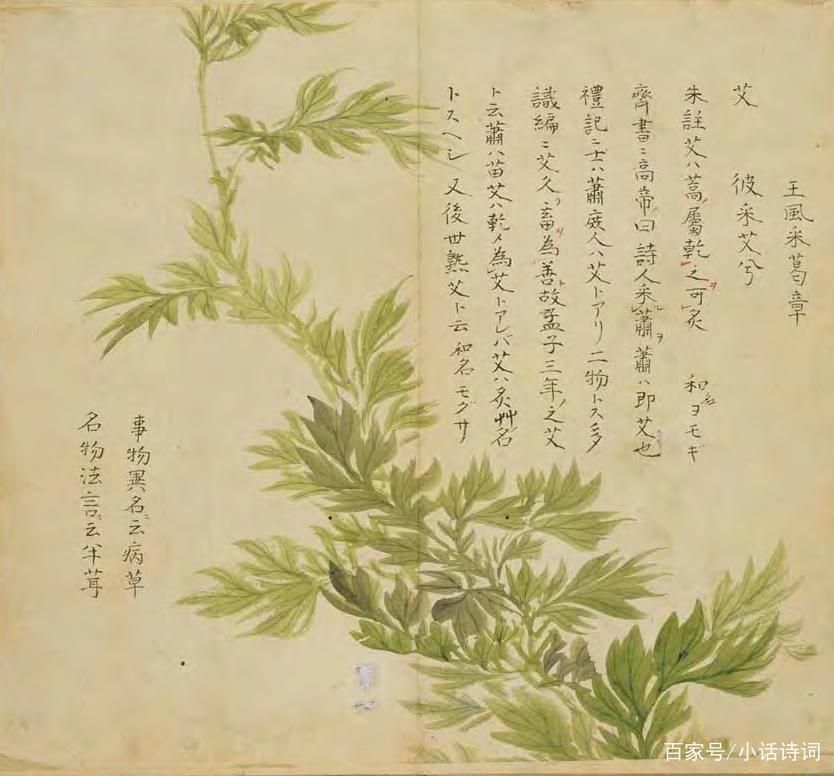 王風采葛章
艾　彼采艾兮
朱註艾ハ蒿屬乾之可炙　和名ヨモギ
齊書ニ高帝曰詩人采蕭蕭ハ即艾也
禮記ニ士ハ蕭庶人ハ艾トアリ二物トス多
識編ニ艾久ク畜為善故孟子三年ノ之艾
ト云蕭ハ苗艾ハ乾メ為艾トアレバ艾ハ炙艸名
トスヘシ又後世熟艾ト云和名モグサ
事物異名ニ云病草
名物法言ニ云半茸
百家号/小话诗词